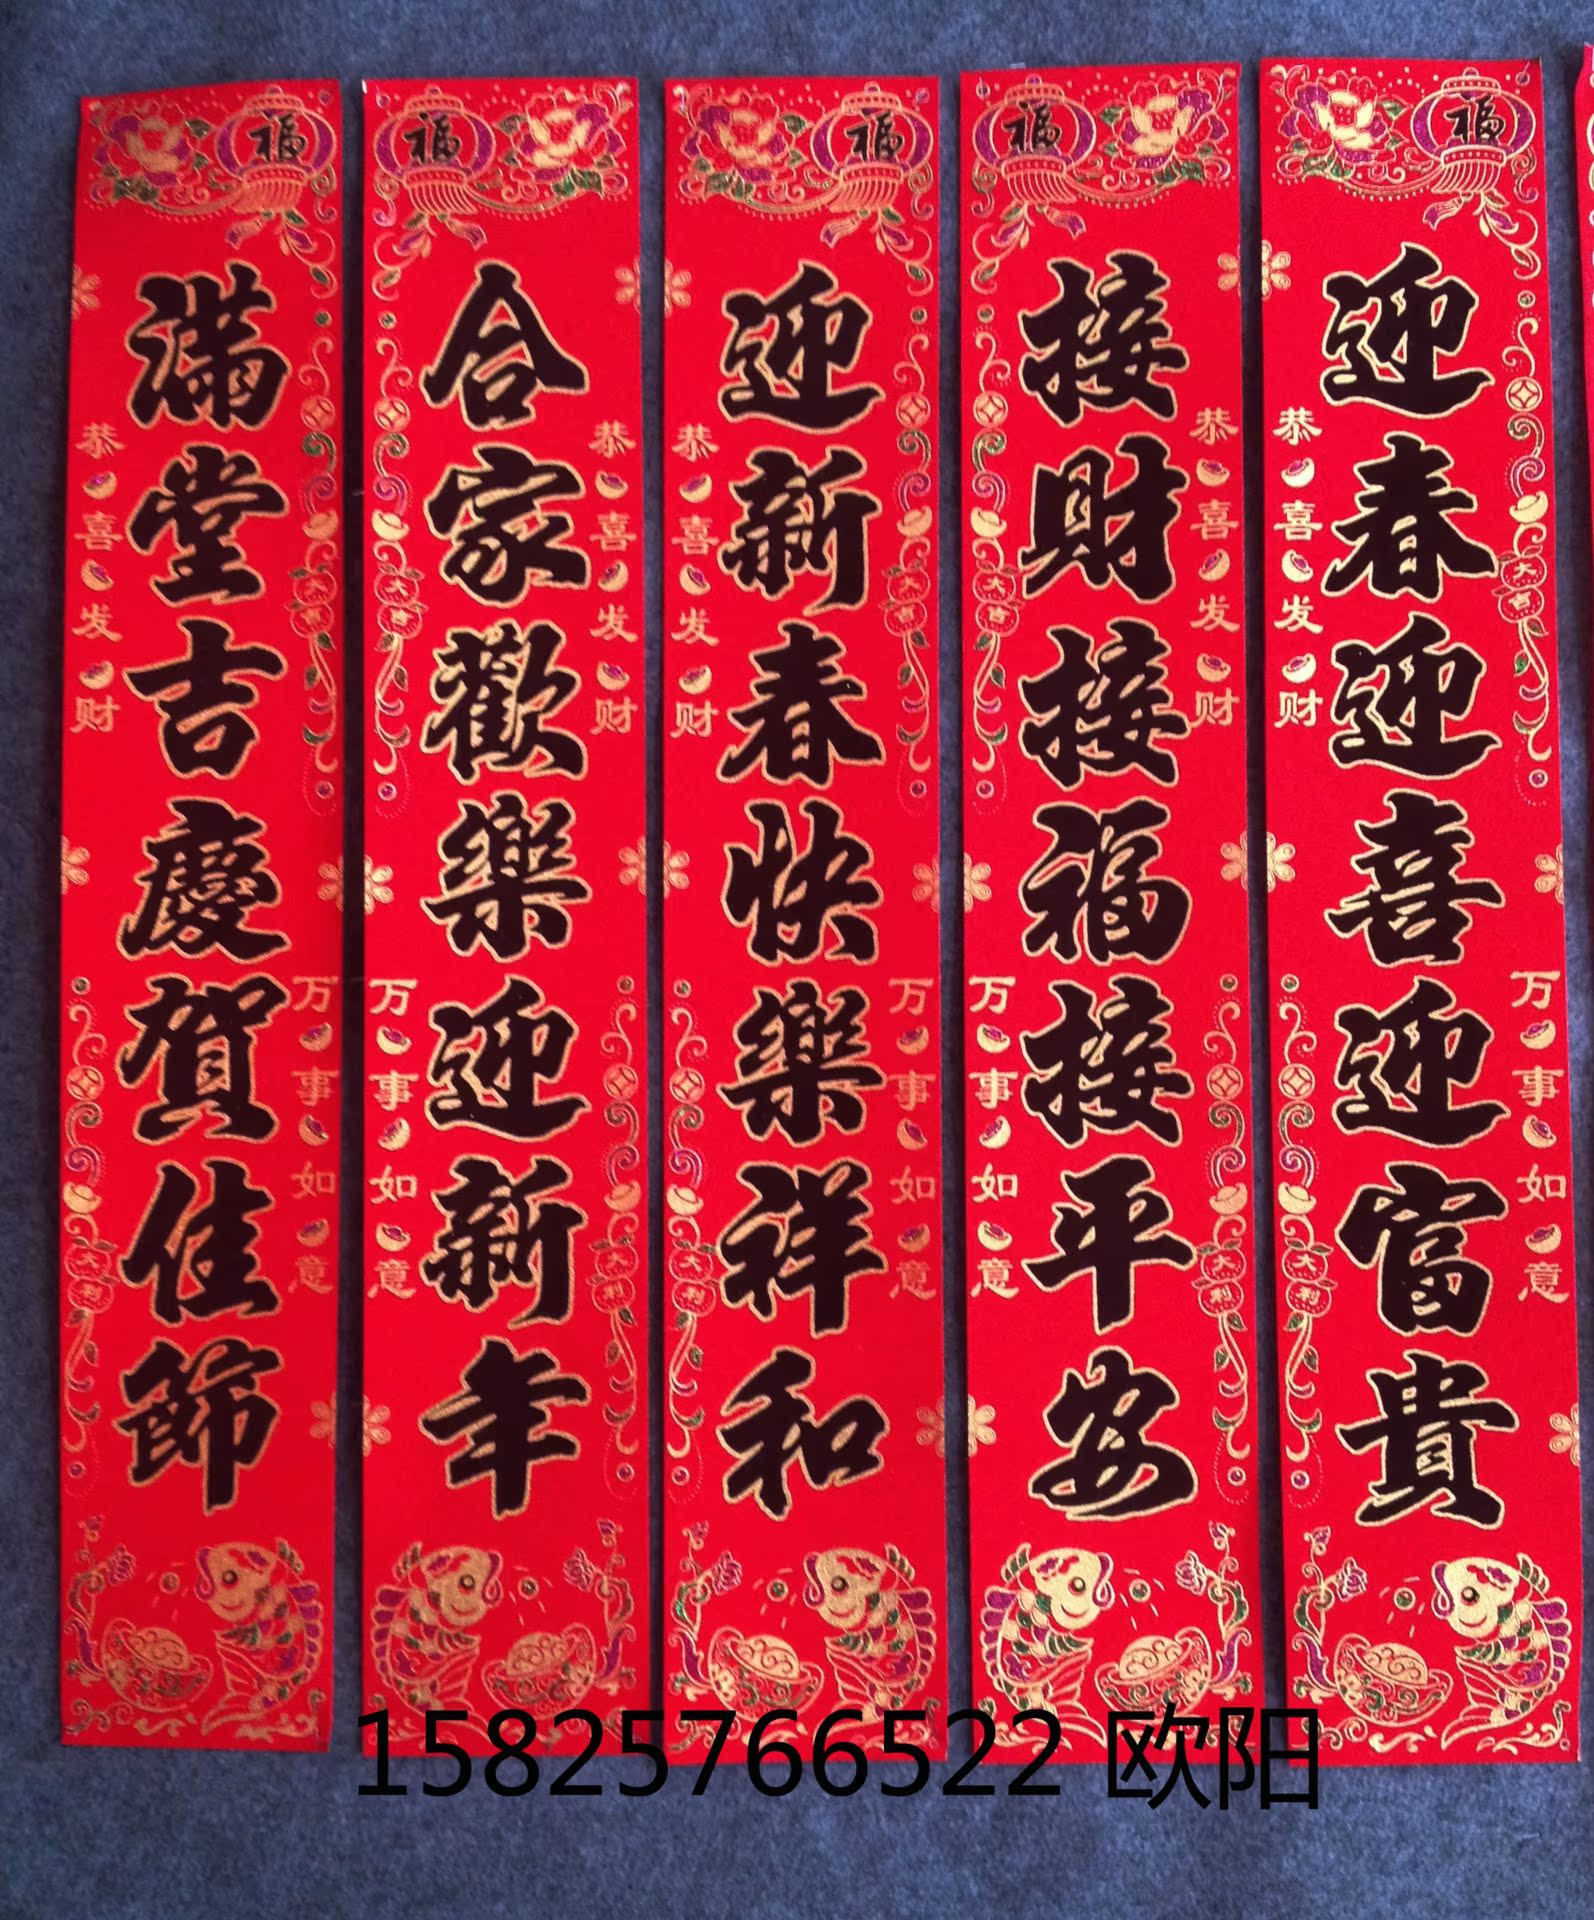 福
满堂吉慶賀佳節
恭喜发财
大吉
万事如意
大利
福
合家歡樂迎新年
恭喜发财
万事如意
大利
福
迎新春快樂祥和
恭喜发财
大吉
万事如意
大利
福
接財接福接平安
恭喜发财
大吉
万事如意
大利
福
迎春迎喜迎富貴
恭喜发财
大吉
万事如意
大利
15825766522 欧阳